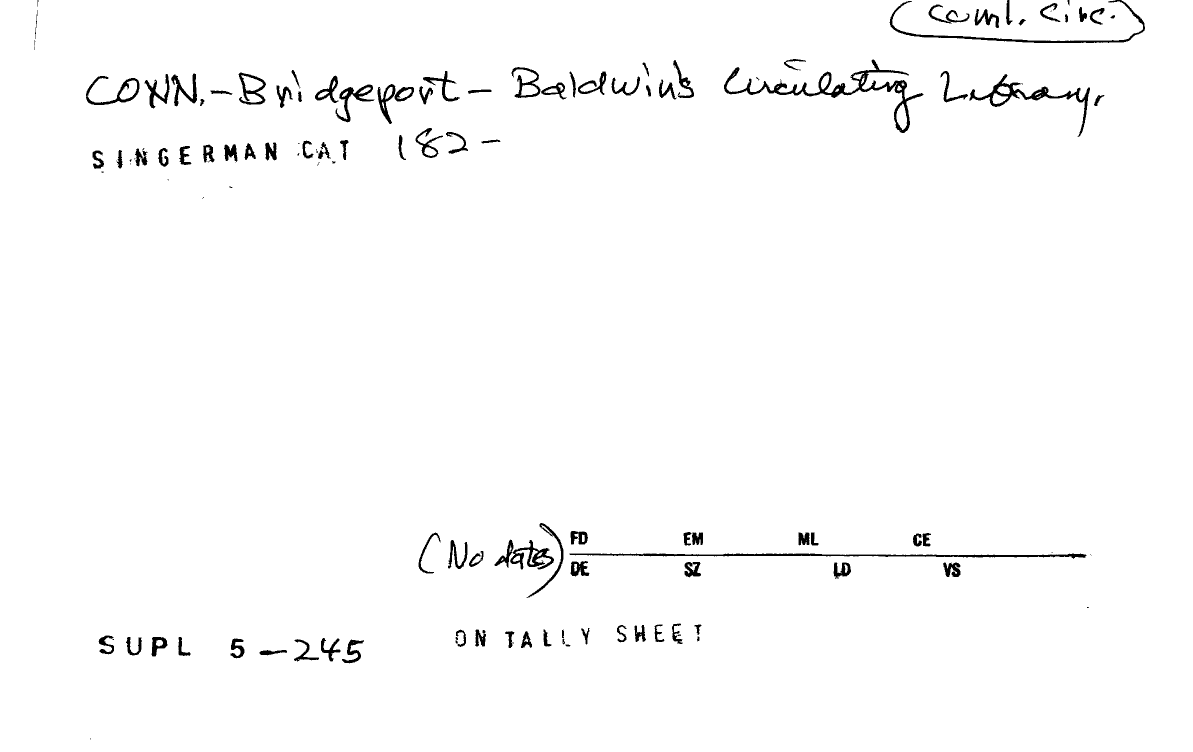 (coml. circ.)
CONN.-Bridgeport- Baldwin's Circulating Library.
SINGERMAN CAT 182-
(No dates) FD EM ML CE
DE SZ LD VS
SUPL 5-245 ON TALLY SHEET